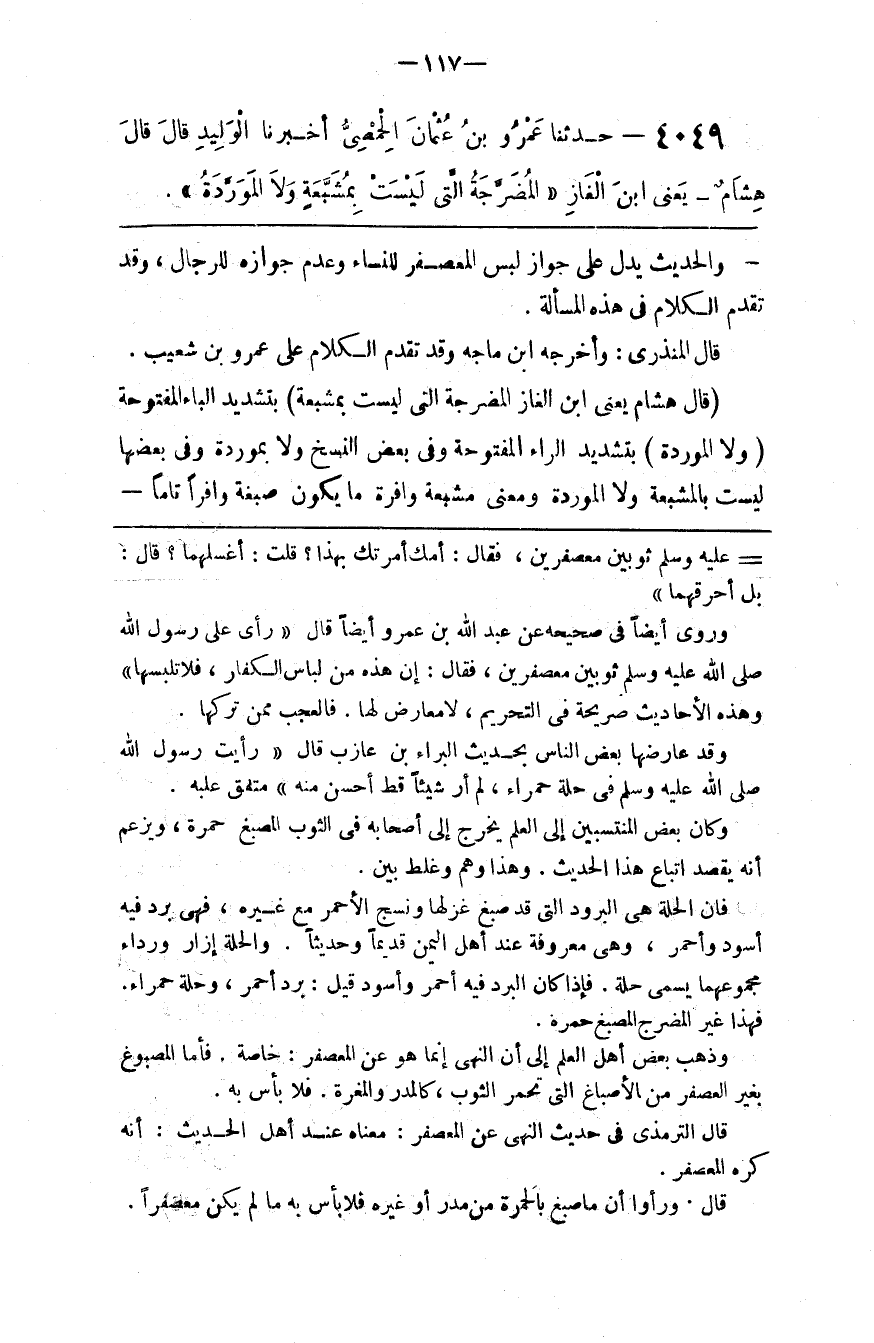 —١١٧—
٤٠٤٩ — حـدثنا عَمْرُو بنُ عُثْمَانَ الْحِمْصِيُّ أخـبرنا الْوَلِيدِ قالَ قالَ
هِشَامٌ ـ يَعنى ابنَ الْغَازِ « الْمُضَرَّجَةُ الَّتى لَيْسَتْ بِمُشَبَّعَةٍ وَلاَ الْمَوَرَّدَةُ » .
– والحديث يدل على جواز لبس المعصـفر للنساء وعدم جوازه للرجال ، وقد
تقدم الـكلام فى هذه المسألة .
قال المنذرى : وأخرجه ابن ماجه وقد تقدم الـكلام على عمرو بن شعيب .
(قال هشام يعنى ابن الغاز المضرجة التى ليست بمشبعة) بتشديد الباء المفتوحة
( ولا الموردة ) بتشديد الراء المفتوحة وفى بعض النسخ ولا بموردة وفى بعضها
ليست بالمشبعة ولا الموردة ومعنى مشبعة وافرة ما يكون صبغة وافراً تاماً —
= عليه وسلم ثوبين معصفرين ، فقال : أمك أمرتك بهذا ؟ قلت : أغسلهما ؟ قال :
بل أحرقهما »
وروى أيضاً فى صحيحه عن عبد الله بن عمرو أيضاً قال « رأى على رسول الله
صلى الله عليه وسلم ثوبين معصفرين ، فقال : إن هذه من لباس الـكفار ، فلا تلبسها»
وهذه الأحاديث صريحة فى التحريم ، لا معارض لها . فالعجب ممن تركها .
وقد عارضها بعض الناس بحـديث البراء بن عازب قال « رأيت رسول الله
صلى الله عليه وسلم فى حلة حمراء ، لم أر شيئاً قط أحسن منه » متفق علبه .
وكان بعض المنتسبين إلى العلم يخرج إلى أصحابه فى الثوب المصبغ حمرة ، ويزعم
أنه يقصد اتباع هذا الحديث . وهذا وهم وغلط بين .
فان الحلة هى البرود التى قد صبغ غزلها ونسج الأحمر مع غـيره ، فهى برد فيه
أسود وأحمر ، وهى معروفة عند أهل اليمن قديماً وحديثاً . والحلة إزار ورداء
مجموعهما يسمى حلة . فإذا كان البرد فيه أحمر وأسود قيل : برد أحمر ، وحلة حمراء.
فهذا غير المضرج المصبغ حمرة .
وذهب بعض أهل العلم إلى أن النهى إنما هو عن المعصفر : خاصة . فأما المصبوغ
بغير العصفر من الأصباغ التى تحمر الثوب ، كالمدر والمغرة . فلا بأس به .
قال الترمذى فى حديث النهى عن المعصفر : معناه عنـد أهل الحـديث : أنه
كره المعصفر .
قال · ورأوا أن ما صبغ بالحمرة من مدر أو غيره فلا بأس به ما لم يكن معصفراً .